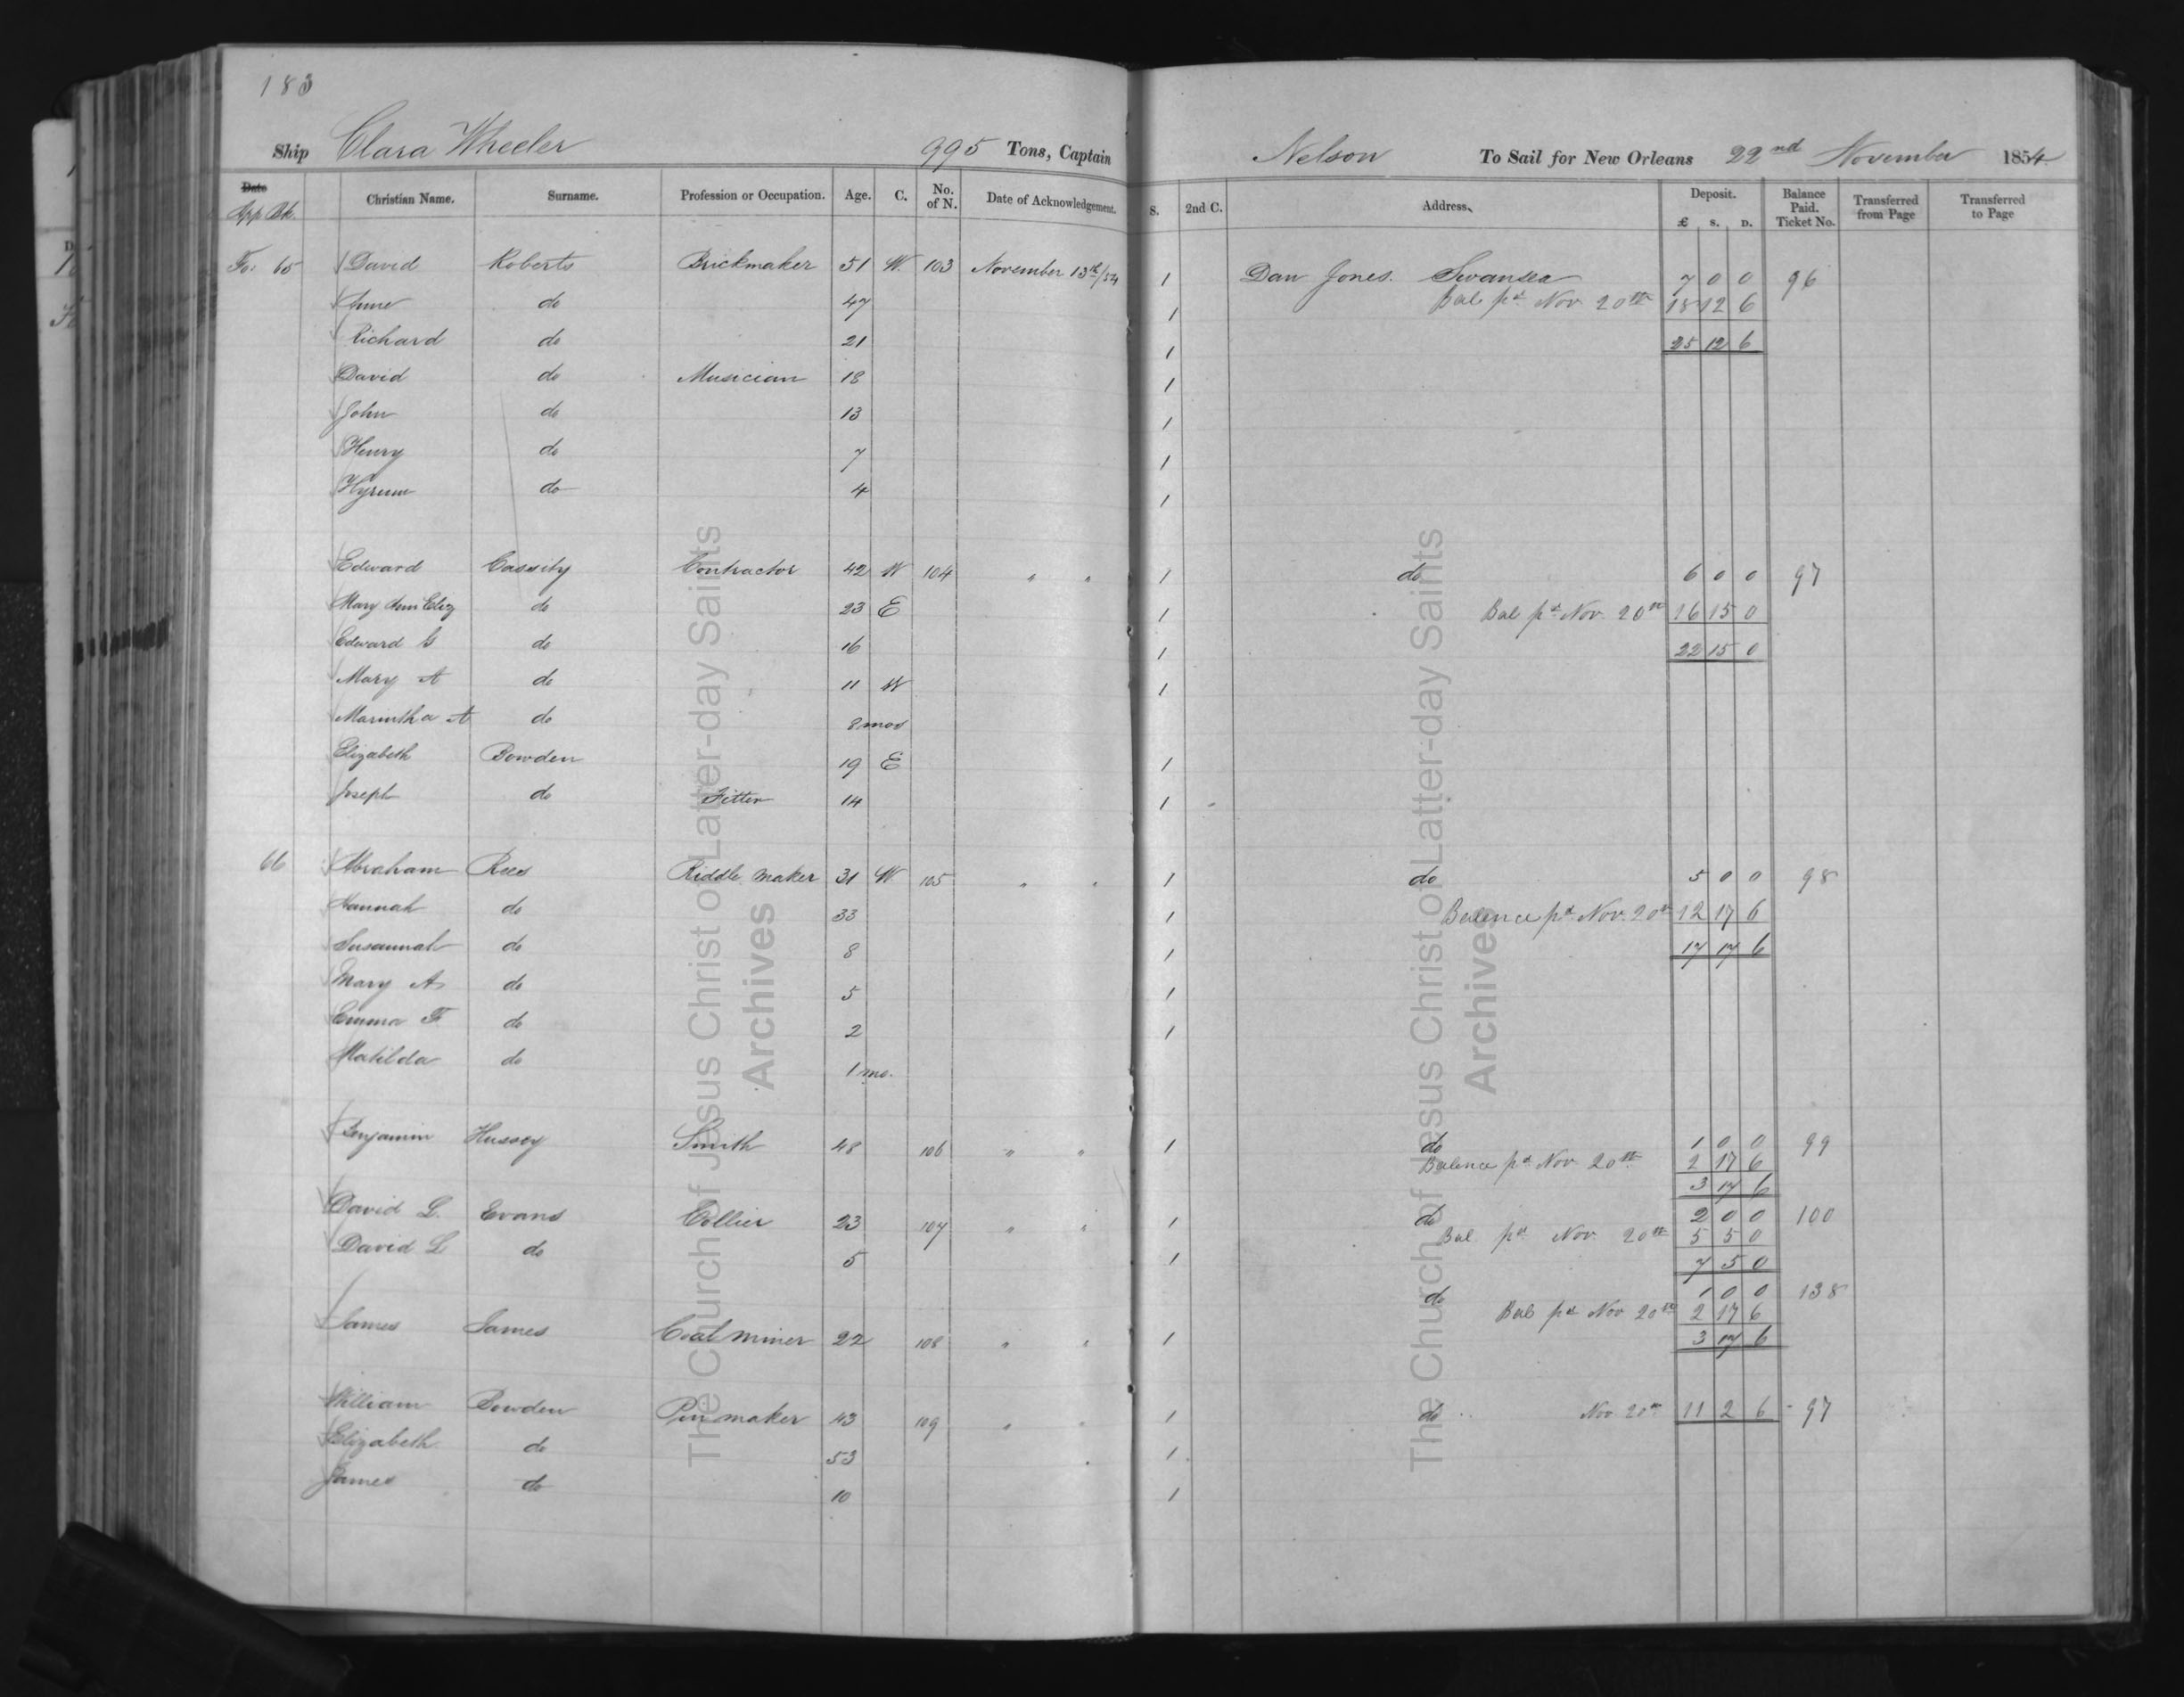 183
Ship Clara Wheeler 995 Tons, Captain Nelson To Sail for New Orleans 22nd November 1854
Date App Bk. Christian Name. Surname. Profession or Occupation. Age. C. No. of N. Date of Acknowledgement. S. 2nd C. Address. Deposit. £ s. D. Balance Paid. Ticket No. Transferred from Page Transferred to Page
Fo: 65 David Roberts Brickmaker 51 W. 103 November 13th/54 1 Dan Jones. Swansea 7 0 0 96
Jane do 47 1 Bal pd Nov 20th 18 12 6
Richard do 21 1 25 12 6
David do Musician 18 1
John do 13 1
Henry do 7 1
Hyrum do 4 1
Edward Cassity Contractor 42 W 104 " " 1 do 6 0 0 97
Mary Ann Eliz do 23 E 1 Bal pd Nov. 20th 16 15 0
Edward G do 16 1 22 15 0
Mary A do 11 W 1
Marintha A do 8 mos
Elizabeth Bowden 19 E 1
Joseph do Fitter 14 1
66 Abraham Rees Riddle maker 31 W. 105 " " 1 do 5 0 0 98
Hannah do 33 1 Balance pd Nov. 20th 12 17 6
Susannah do 8 1 17 17 6
Mary A do 5 1
Emma F do 2 1
Matilda do 1 mo.
Benjamin Hussey Smith 48 106 " " 1 do 1 0 0 99
Balance pd Nov 20th 2 17 6
3 17 6
David L. Evans Collier 23 107 " " 1 do 2 0 0 100
Bal pd Nov 20th 5 5 0
David L do 5 1 7 5 0
do 1 0 0 138
Bal pd Nov 20th 2 17 6
James James Coal miner 22 108 " " 1 3 17 6
William Bowden Pin maker 43 109 " " 1 do Nov 20th 11 2 6 - 97
Elizabeth do 53 1
James do 10 1
The Church of Jesus Christ of Latter-day Saints
Archives
The Church of Jesus Christ of Latter-day Saints
Archives